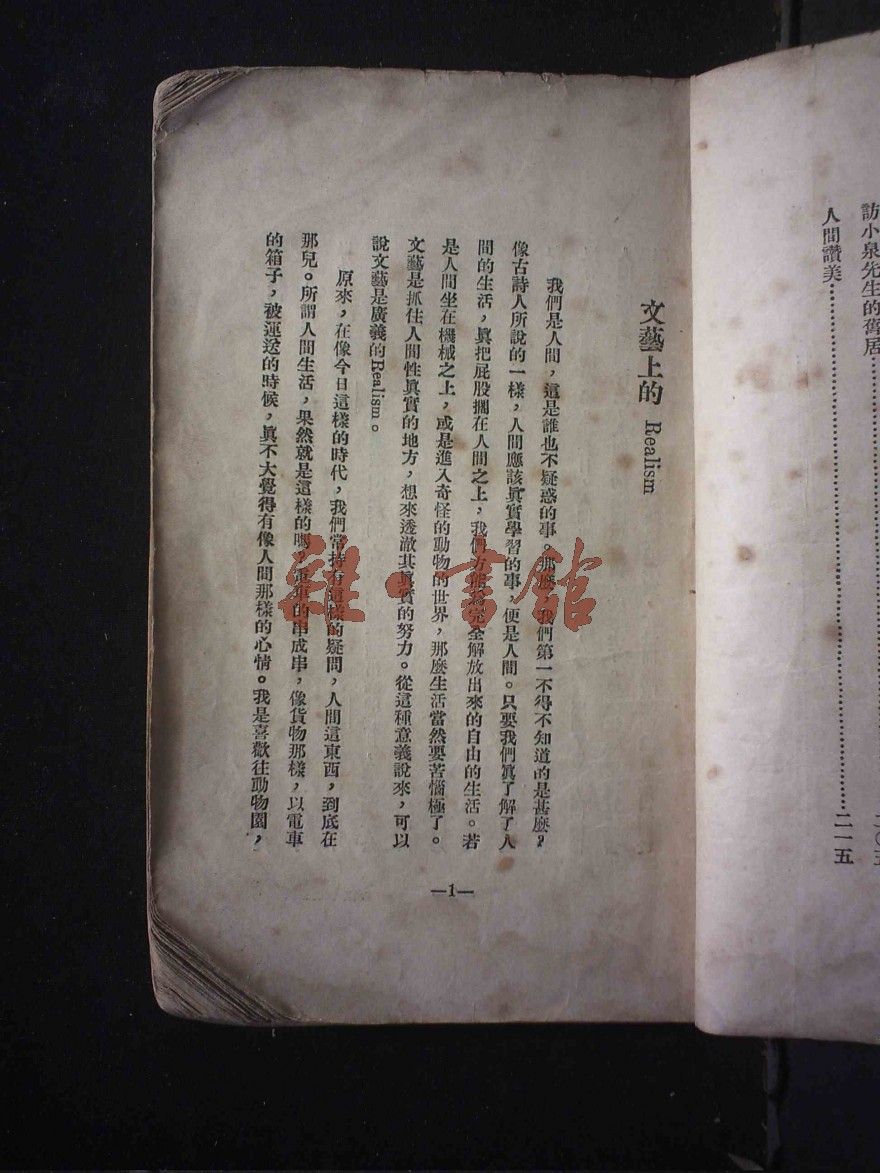 訪小泉先生的舊居
人間讚美
二一五
文藝上的 Realism
我們是人間，這是誰也不疑惑的事。那麼，我們第一不得不知道的是甚麼？
像古詩人所說的一樣，人間應該眞實學習的事，便是人間。只要我們眞了解了人
間的生活，眞把屁股擱在人間之上，我們方能爲完全解放出來的自由的生活。若
是人間坐在機械之上，或是進入奇怪的動物的世界，那麼生活當然要苦惱極了。
文藝是抓住人間性眞實的地方，想來透澈其眞實的努力。從這種意義說來，可以
說文藝是廣義的Realism。
原來，在像今日這樣的時代，我們常持有這樣的疑問，人間這東西，到底在
那兒。所謂人間生活，果然就是這樣的嗎？電車的串成串，像貨物那樣，以電車
的箱子，被運送的時候，眞不大覺得有像人間那樣的心情。我是喜歡往動物園，
—1—
雜書館